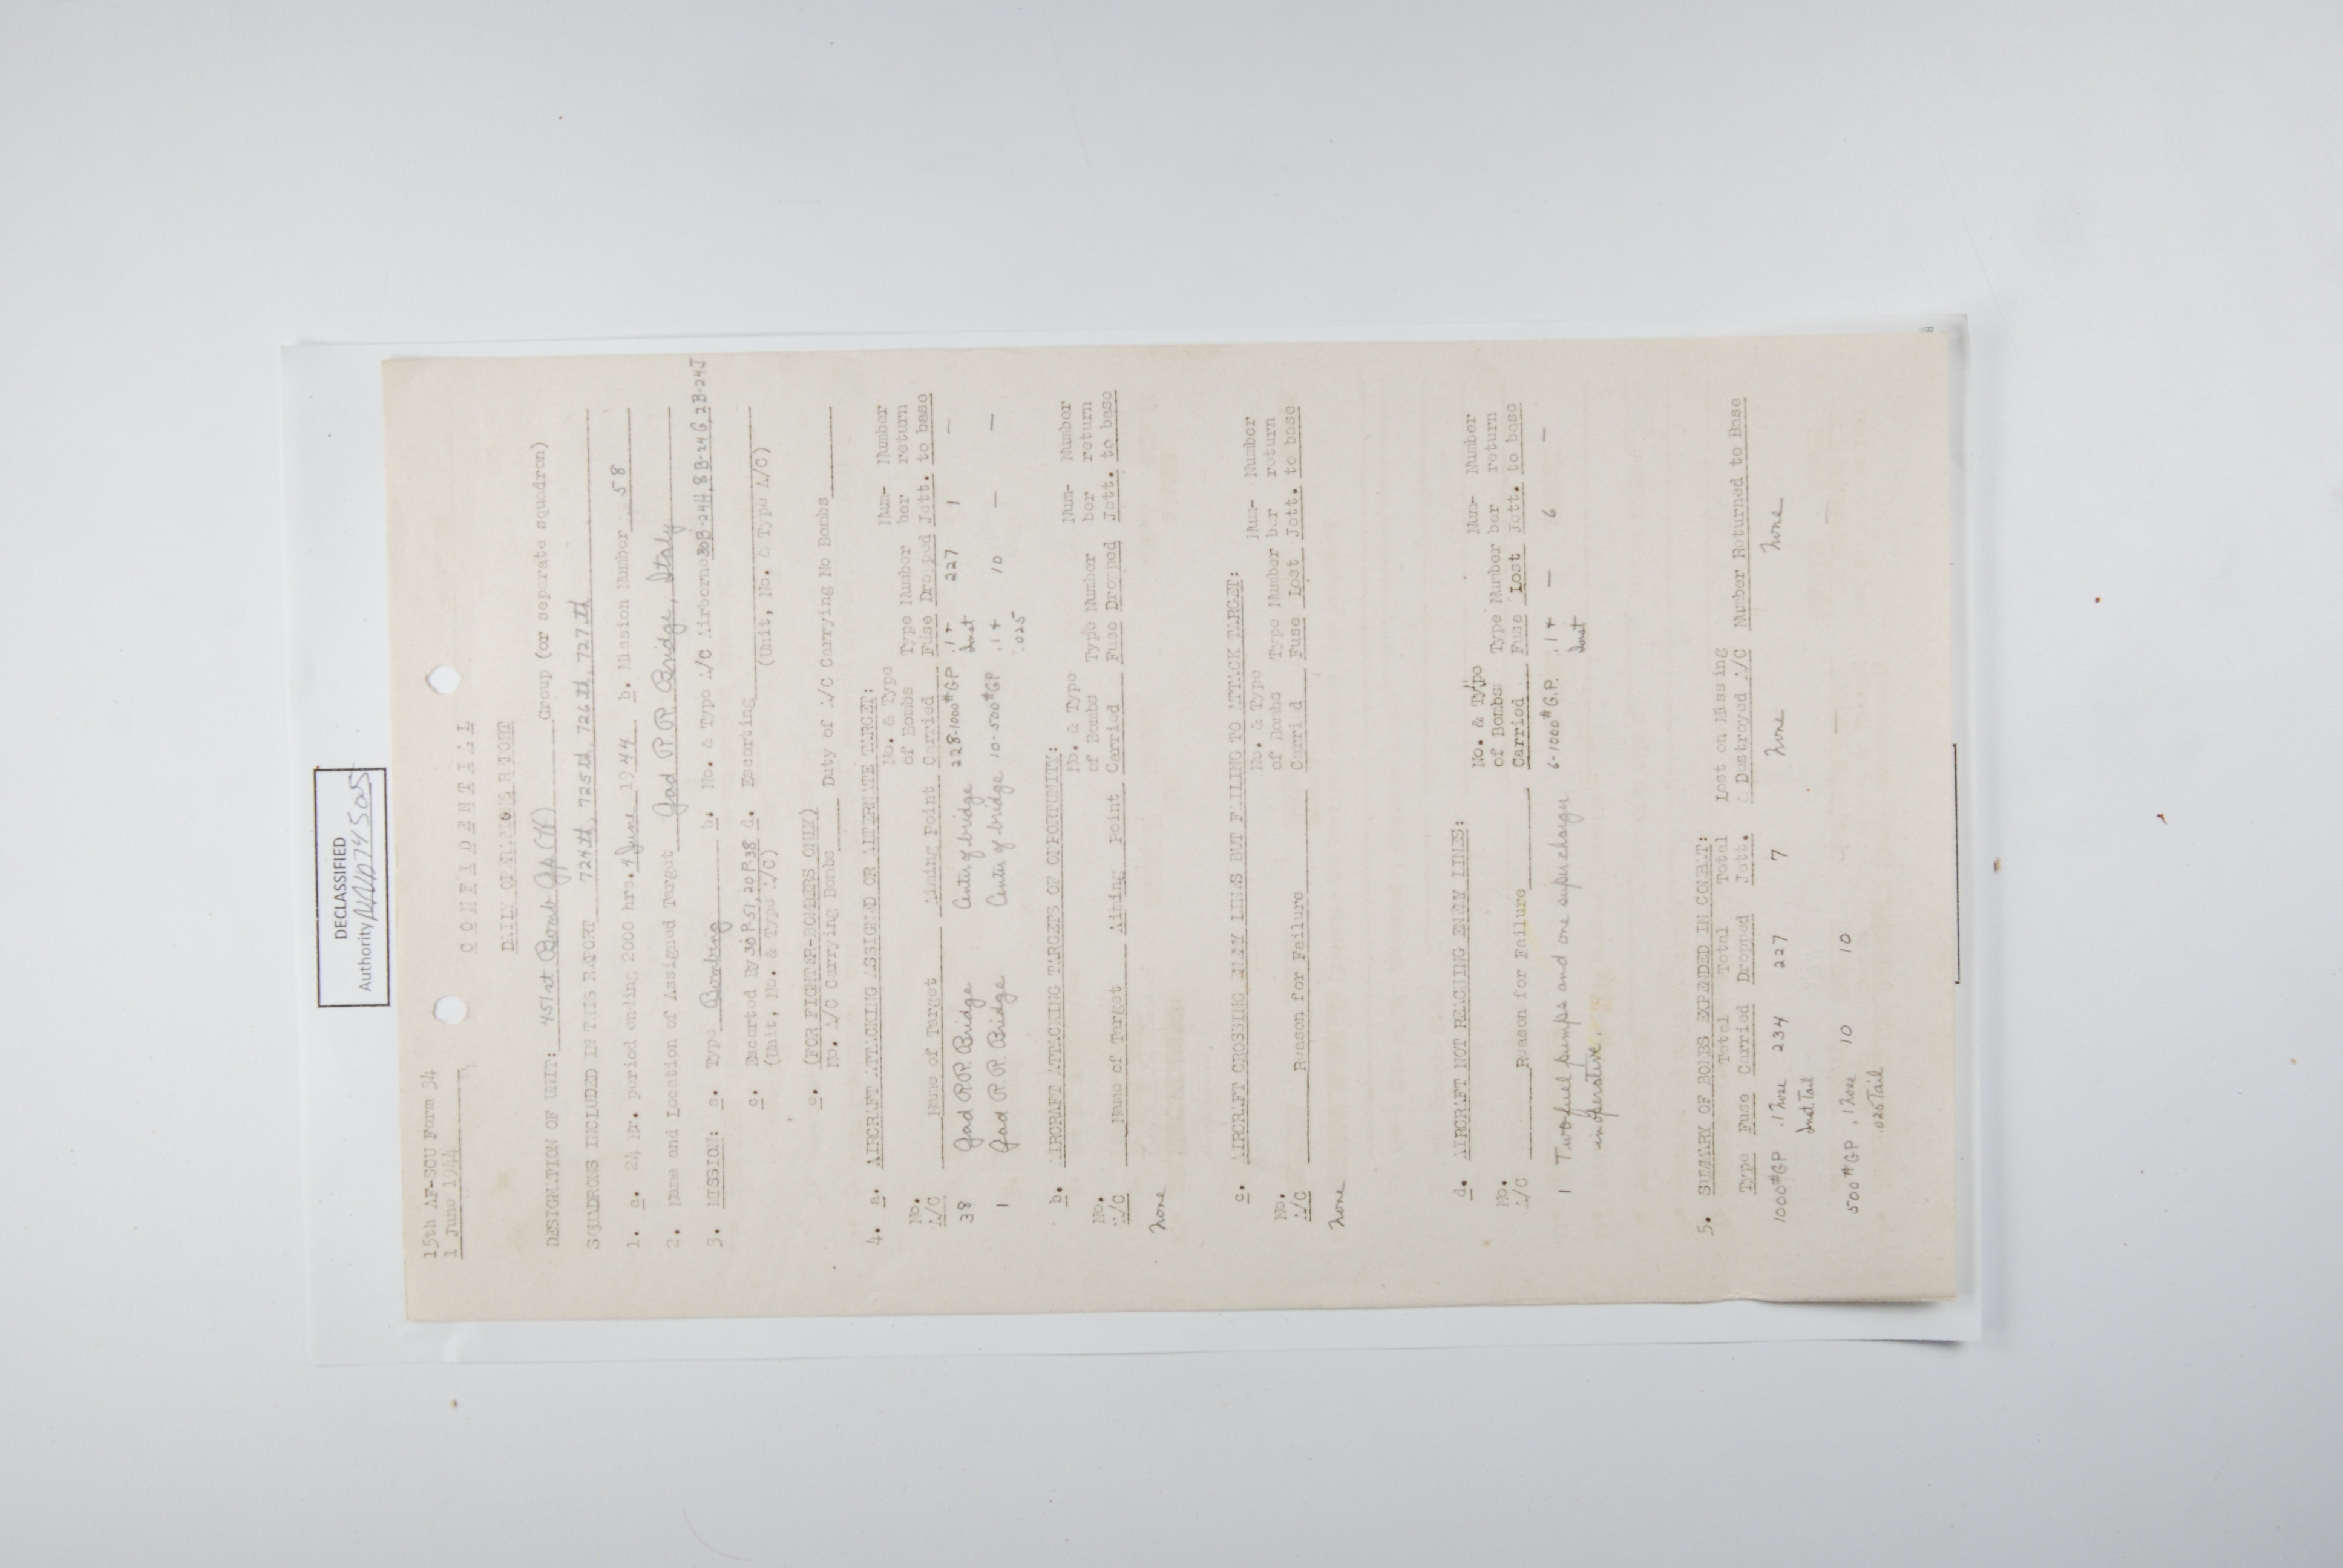 DECLASSIFIED
Authority NND745005
15th AF-SCU Form 34
1 June 1944
CONFIDENTIAL
DAILY OPERATIONS REPORT
DESIGNATION OF UNIT: 451st Bomb Gp (H) Group (or separate squadron)
SQUADRONS INCLUDED IN THIS REPORT 724th, 725th, 726th, 727th
1. a. 24 Hr. period ending 2000 hrs. 4 June 1944 b. Mission Number 58
2. Name and Location of Assigned Target Gad R.R. Bridge, Italy
3. MISSION: a. Type Bombing b. No. & Type A/C Airborne 30B-24H, 8 B-24G, 2B-24J
c. Escorted By 36 P-51, 20 P-38 d. Escorting
(Unit, No. & Type A/C) (Unit, No. & Type A/C)
e. (FOR FIGHTER-BOMBERS ONLY)
No. A/C Carrying Bombs Duty of A/C Carrying No Bombs
4. a. AIRCRAFT ATTACKING ASSIGNED OR ALTERNATE TARGET:
No. & Type Num- Number
No. of Bombs Type Number ber return
A/C Name of Target Aiming Point Carried Fuse Dropped Jett. to base
38 Gad R.R. Bridge Center of bridge 228-1000#GP .1+ 227 1 —
Inst
1 Gad R.R. Bridge Center of bridge 10-500#GP .1+ 10 — —
.025
b. AIRCRAFT ATTACKING TARGETS OF OPPORTUNITY:
No. & Type Num- Number
No. of Bombs Type Number ber return
A/C Name of Target Aiming Point Carried Fuse Dropped Jett. to base
None
c. AIRCRAFT CROSSING ENEMY LINES BUT FAILING TO ATTACK TARGET:
No. & Type Num- Number
No. of Bombs Type Number ber return
A/C Reason for Failure Carried Fuse Lost Jett. to base
None
d. AIRCRAFT NOT REACHING ENEMY LINES:
No. & Type Num- Number
No. of Bombs Type Number ber return
A/C Reason for Failure Carried Fuse Lost Jett. to base
1 Two fuel pumps and one supercharger 6-1000#G.P. .1+ — 6 —
inoperative. Inst
5. SUMMARY OF BOMBS EXPENDED IN COMBAT:
Total Total Total Lost on Missing
Type Fuse Carried Dropped Jett. & Destroyed A/C Number Returned to Base
1000#GP .1 Nose 234 227 7 None None
Inst Tail
500#GP .1 Nose 10 10 — —
.025 Tail